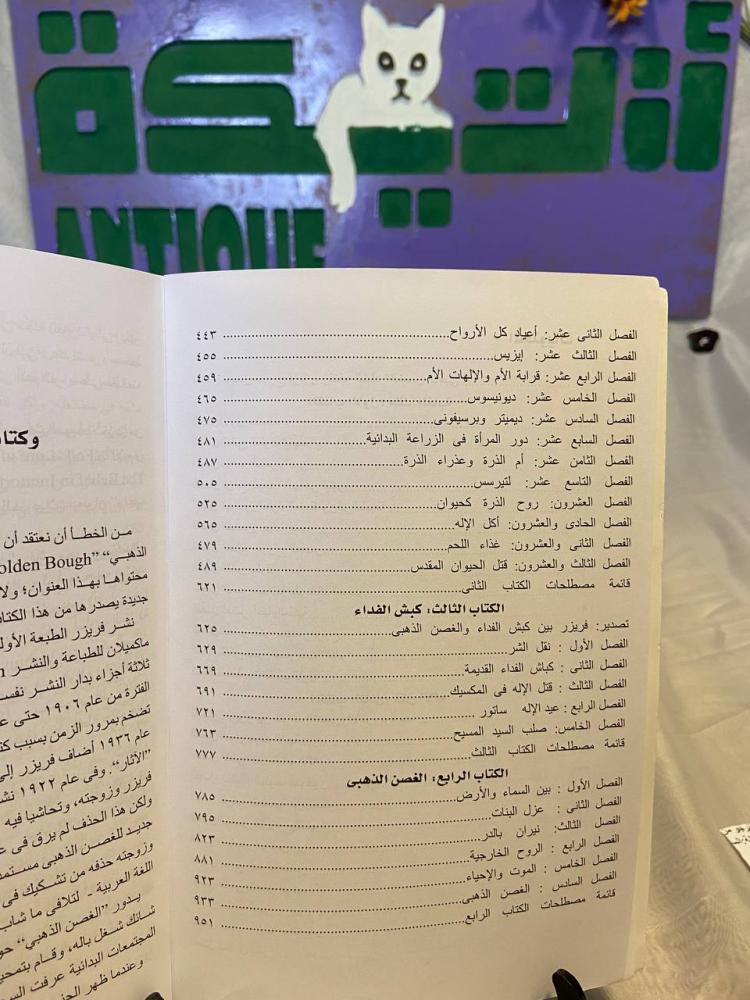 أنتيكة
ANTIQUE
الفصل الثانى عشر: أعياد كل الأرواح ٤٤٣
الفصل الثالث عشر: إيزيس ٤٥٥
الفصل الرابع عشر: قرابة الأم والإلهات الأم ٤٥٩
الفصل الخامس عشر: ديونيسوس ٤٦٥
الفصل السادس عشر: ديميتر وبرسيفونى ٤٧٥
الفصل السابع عشر: دور المرأة فى الزراعة البدائية ٤٨١
الفصل الثامن عشر: أم الذرة وعذراء الذرة ٤٨٧
الفصل التاسع عشر: لتيرسس ٥٠٥
الفصل العشرون: روح الذرة كحيوان ٥٢٥
الفصل الحادى والعشرون: أكل الإله ٥٦٥
الفصل الثانى والعشرون: غذاء اللحم ٤٧٩
الفصل الثالث والعشرون: قتل الحيوان المقدس ٤٨٩
قائمة مصطلحات الكتاب الثانى ٦٢١
الكتاب الثالث: كبش الفداء
تصدير: فريزر بين كبش الفداء والغصن الذهبى ٦٢٥
الفصل الأول : نقل الشر ٦٢٩
الفصل الثانى : كباش الفداء القديمة ٦٦٩
الفصل الثالث : قتل الإله فى المكسيك ٦٩١
الفصل الرابع : عيد الإله ساتور ٧٢١
الفصل الخامس: صلب السيد المسيح ٧٦٣
قائمة مصطلحات الكتاب الثالث ٧٧٧
الكتاب الرابع: الغصن الذهبى
الفصل الأول : بين السماء والأرض ٧٨٥
الفصل الثانى : عزل البنات ٧٩٥
الفصل الثالث: نيران بالدر ٨٢٣
الفصل الرابع : الروح الخارجية ٨٨١
الفصل الخامس : الموت والإحياء ٩٢٣
الفصل السادس : الغصن الذهبى ٩٣٣
قائمة مصطلحات الكتاب الرابع ٩٥١
من الخطأ أن نعتقد أن
الذهبي" "olden Bough
محتواها بهذا العنوان؛ ولا
جديدة يصدرها من هذا الكتاب
نشر فريزر الطبعة الأولى
ماكميلان للطباعة والنشر
ثلاثة أجزاء بدار النشر نفس
الفترة من عام ١٩٠٦ حتى
تضخم بمرور الزمن بسبب
عام ١٩٣٦ أضاف فريزر إلى
"الآثار". وفى عام ١٩٢٢
فريزر وزوجته، وتحاشيا فيه
ولكن هذا الحذف لم يرق فى
جديد للغصن الذهبى
وزوجته حذفه من تشكيك فى
اللغة العربية - لتلافى ما شاب
يدور "الغصن الذهبي"
شائك شغل باله، وقام
المجتمعات البدائية عرفت
وعندما ظهر